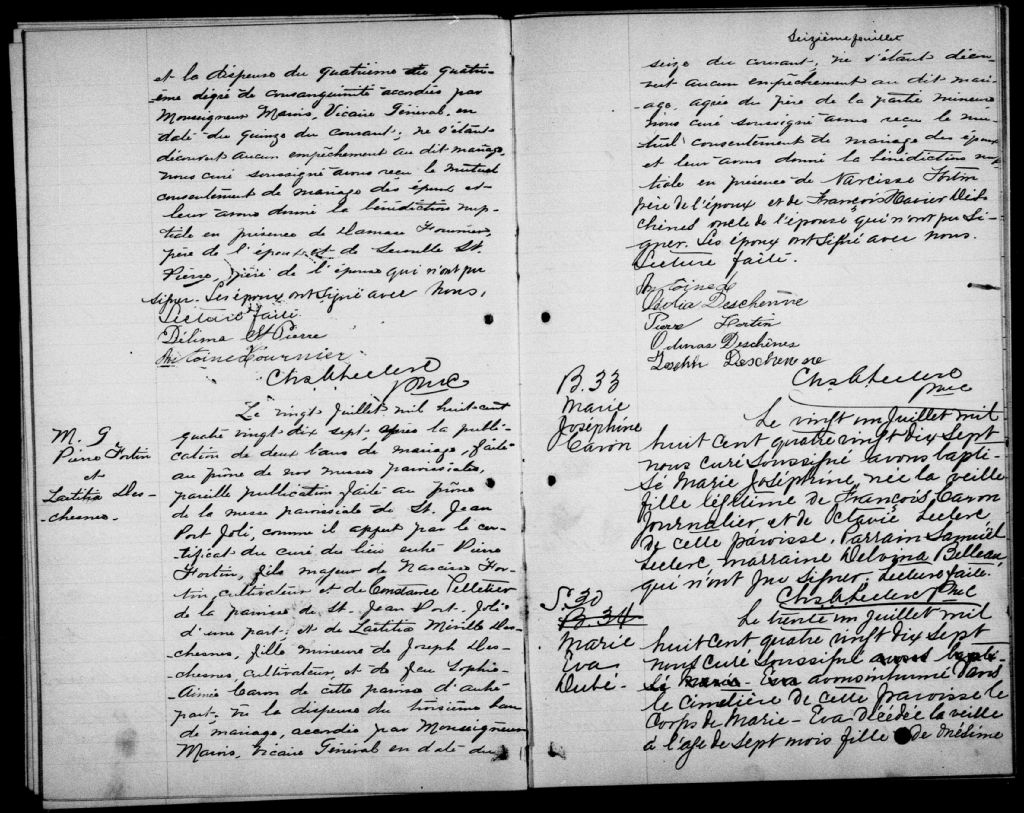 et la dispense du quatrième au quatri-
-ème degré de consanguinité accordée par
Monseigneur Marois, Vicaire Général, en
date du quinze du courant; ne s'étant
découvert aucun empêchement au dit mariage,
nous curé soussigné avons reçu le mutuel
consentement de mariage des époux et
leur avons donné la bénédiction nup-
tiale en présence de Damase Fournier,
père de l'époux et de St.
Pierre, père de l'épouse qui n'ont pu
signer. Les époux ont signé avec nous.
Lecture faite
Délima St Pierre
Antoine Fournier
Chs. A. Leclerc
Ptre C
M. 9
Pierre Fortin
et
Laetitia Des-
-chesnes.
Le vingt Juillet mil huit cent
quatre vingt dix sept après la publi-
cation de deux bans de mariage, faite
au prône de nos messes paroissiales,
pareille publication faite au prône
de la messe paroissiale de St. Jean
Port Joli, comme il appert par le cer-
tificat du curé du lieu entre Pierre
Fortin, fils majeur de Narcisse For-
tin cultivateur et de Constance Pelletier
de la paroisse de St. Jean Port Joli
d'une part; et de Laetitia Miville Des-
chesnes, fille mineure de Joseph Des-
chesnes, cultivateur, et de feu Sophie-
Aimée Caron de cette paroisse d'autre
part; vu la dispense du troisième ban
de mariage, accordée par Monseigneur
Marois, Vicaire Général en date du
Seizième Juillet
seize du courant; ne s'étant décou-
vert aucun empêchement au dit mari-
age, agrée du père de la partie mineure
nous curé soussigné avons reçu le mu-
tuel consentement de mariage des époux
et leur avons donné la bénédiction nup-
tiale en présence de Narcisse Fortin
père de l'époux et de François Xavier Des-
chênes oncle de l'épouse qui n'ont pu si-
gner. Les époux ont signé avec nous.
Lecture faite.
Deschenne
Pierre Fortin
Odinas Deschênes
Deschenne
Chs. A. Leclerc
Ptre C
B. 33
Marie
Joséphine
Caron
Le vingt un Juillet mil
huit cent quatre vingt dix sept
nous curé soussigné avons bapti-
sé Marie Joséphine, née la veille
fille légitime de François Caron
Journalier et de Octavie Leclerc
de cette paroisse. Parrain Samuël
Leclerc, marraine Delvina Belleau,
qui n'ont pu signer. Lecture faite.
Chs. A. Leclerc Ptre C
S. 30
B. 34
Marie
Eva
Dubé.
Le trente un Juillet mil
huit cent quatre vingt dix sept
nous curé soussigné avons bapti-
sé Marie Eva avons inhumé dans
le cimetière de cette paroisse le
corps de Marie-Eva décédée la veille
à l'âge de sept mois fille de Onésime